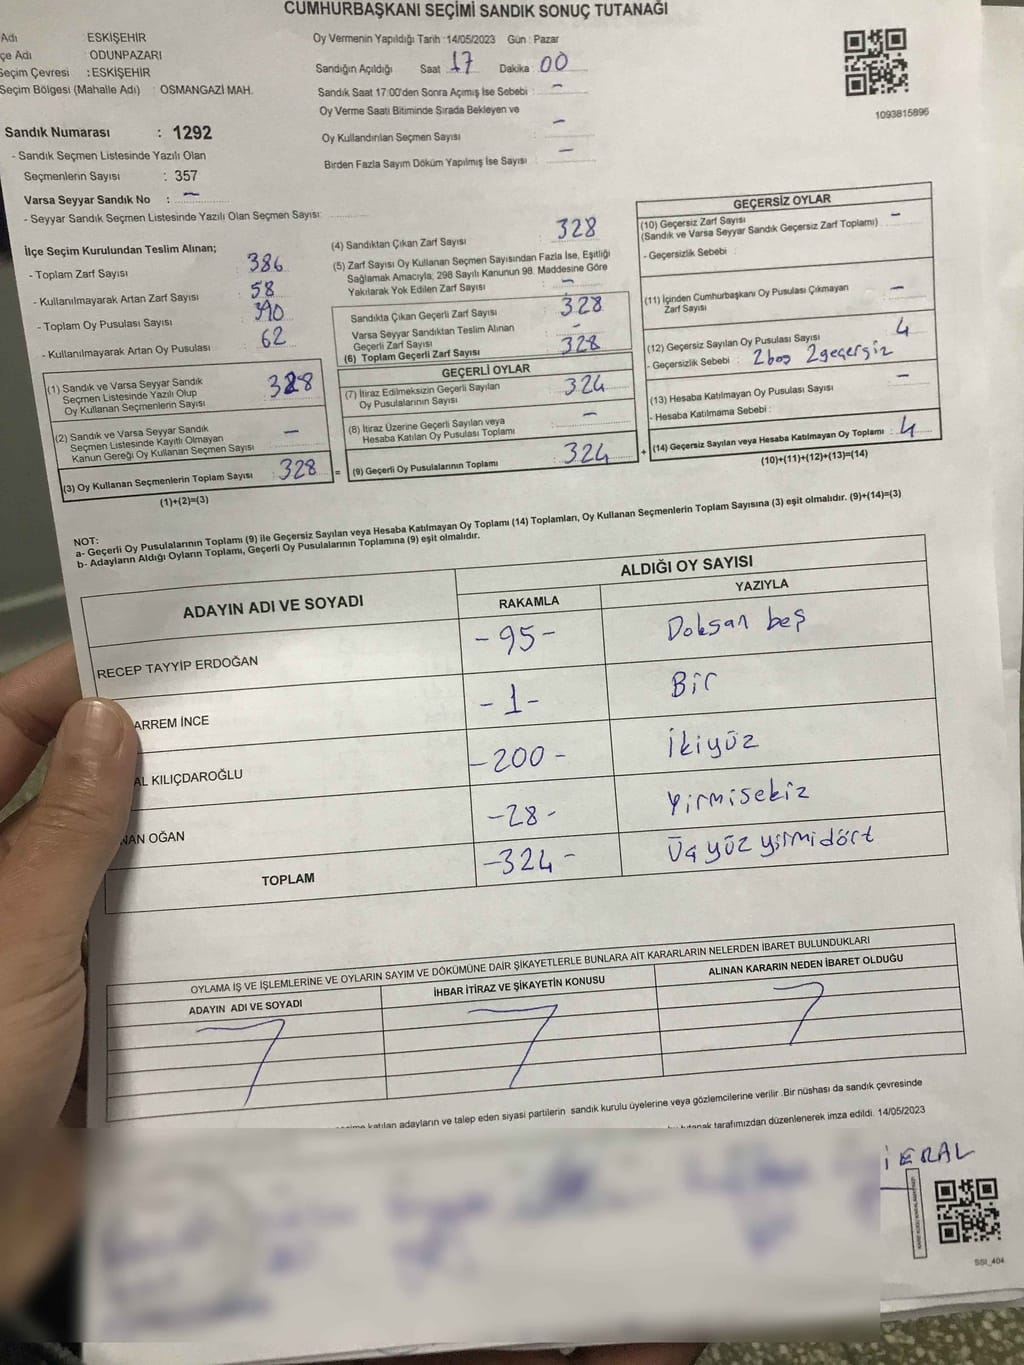 CUMHURBAŞKANI SEÇİMİ SANDIK SONUÇ TUTANAĞI
Adı : ESKİŞEHİR
çe Adı : ODUNPAZARI
Seçim Çevresi : ESKİŞEHİR
Seçim Bölgesi (Mahalle Adı) : OSMANGAZİ MAH.
Sandık Numarası : 1292
- Sandık Seçmen Listesinde Yazılı Olan
Seçmenlerin Sayısı : 357
Varsa Seyyar Sandık No : –
- Seyyar Sandık Seçmen Listesinde Yazılı Olan Seçmen Sayısı:
Oy Vermenin Yapıldığı Tarih :14/05/2023 Gün : Pazar
Sandığın Açıldığı Saat 17 Dakika 00
Sandık Saat 17:00'den Sonra Açımış İse Sebebi : –
Oy Verme Saati Bitiminde Sırada Bekleyen ve
Oy Kullandırılan Seçmen Sayısı –
Birden Fazla Sayım Döküm Yapılmış İse Sayısı –
1093815896
İlçe Seçim Kurulundan Teslim Alınan;
- Toplam Zarf Sayısı 386
- Kullanılmayarak Artan Zarf Sayısı 58
- Toplam Oy Pusulası Sayısı 390
- Kullanılmayarak Artan Oy Pusulası 62
(1) Sandık ve Varsa Seyyar Sandık
Seçmen Listesinde Yazılı Olup
Oy Kullanan Seçmenlerin Sayısı 328
(2) Sandık ve Varsa Seyyar Sandık
Seçmen Listesinde Kayıtlı Olmayan
Kanun Gereği Oy Kullanan Seçmen Sayısı –
(3) Oy Kullanan Seçmenlerin Toplam Sayısı 328
(1)+(2)=(3)
(4) Sandıktan Çıkan Zarf Sayısı : 328
(5) Zarf Sayısı Oy Kullanan Seçmen Sayısından Fazla İse, Eşitliği
Sağlamak Amacıyla; 298 Sayılı Kanunun 98. Maddesine Göre
Yakılarak Yok Edilen Zarf Sayısı : –
Sandıkta Çıkan Geçerli Zarf Sayısı : 328
Varsa Seyyar Sandıktan Teslim Alınan
Geçerli Zarf Sayısı : –
(6) Toplam Geçerli Zarf Sayısı : 328
=
GEÇERLİ OYLAR
(7) İtiraz Edilmeksizin Geçerli Sayılan
Oy Pusulalarının Sayısı : 324
(8) İtiraz Üzerine Geçerli Sayılan veya
Hesaba Katılan Oy Pusulası Toplamı : –
(9) Geçerli Oy Pusulalarının Toplamı : 324
+
GEÇERSİZ OYLAR
(10) Geçersiz Zarf Sayısı –
(Sandık ve Varsa Seyyar Sandık Geçersiz Zarf Toplamı)
- Geçersizlik Sebebi :
(11) İçinden Cumhurbaşkanı Oy Pusulası Çıkmayan
Zarf Sayısı –
(12) Geçersiz Sayılan Oy Pusulası Sayısı 4
- Geçersizlik Sebebi : 2boş 2geçersiz
(13) Hesaba Katılmayan Oy Pusulası Sayısı –
- Hesaba Katılmama Sebebi :
(14) Geçersiz Sayılan veya Hesaba Katılmayan Oy Toplamı : 4
(10)+(11)+(12)+(13)=(14)
NOT:
a- Geçerli Oy Pusulalarının Toplamı (9) ile Geçersiz Sayılan veya Hesaba Katılmayan Oy Toplamı (14) Toplamları, Oy Kullanan Seçmenlerin Toplam Sayısına (3) eşit olmalıdır. (9)+(14)=(3)
b- Adayların Aldığı Oyların Toplamı, Geçerli Oy Pusulalarının Toplamına (9) eşit olmalıdır.
ADAYIN ADI VE SOYADI
ALDIĞI OY SAYISI
RAKAMLA YAZIYLA
RECEP TAYYİP ERDOĞAN -95- Doksan beş
ARREM İNCE -1- Bir
AL KILIÇDAROĞLU -200- İkiyüz
NAN OĞAN -28- Yirmisekiz
TOPLAM -324- Üç yüz yirmidört
OYLAMA İŞ VE İŞLEMLERİNE VE OYLARIN SAYIM VE DÖKÜMÜNE DAİR ŞİKAYETLERLE BUNLARA AİT KARARLARIN NELERDEN İBARET BULUNDUKLARI
ADAYIN ADI VE SOYADI İHBAR İTİRAZ VE ŞİKAYETİN KONUSU ALINAN KARARIN NEDEN İBARET OLDUĞU
katılan adayların ve talep eden siyasi partilerin sandık kurulu üyelerine veya gözlemcilerine verilir .Bir nüshası da sandık çevresinde
tutanak tarafımızdan düzenlenerek imza edildi. 14/05/2023
ERAL
SSI_404